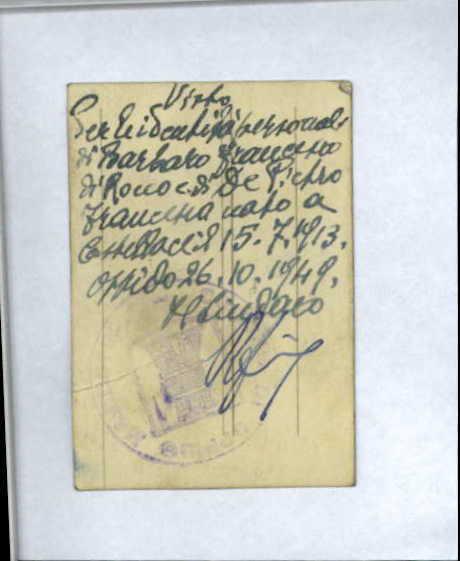 Visto
Per l'identità personale
di Barbaro Francesco
di Rocco e di De Pietro
Francesca nato a
il 15.7.1913.
Oppido 26.10.1949.
Il Sindaco